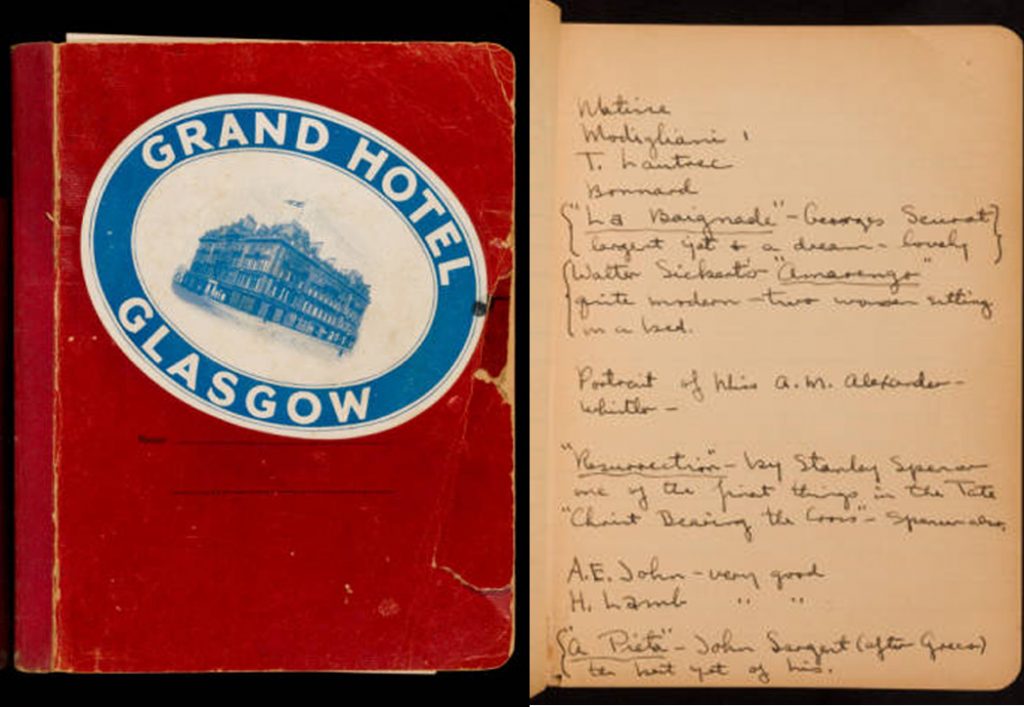 GRAND HOTEL
GLASGOW
Name
Matisse
Modigliani
T. Lautrec
Bonnard
"La Baignade" - Georges Seurat
largest yet & a dream - lovely
Walter Sickert's "Amarengo"
quite modern - two women sitting
on a bed.
Portrait of Miss A.M. Alexander -
Whistler -
"Resurrection" - by Stanley Spencer
one of the first things in the Tate
"Christ Bearing the Cross" - Spencer also,
A.E. John - very good
H. Lamb " "
"A Pieta" - John Sargent (after Greco)
best yet of his.